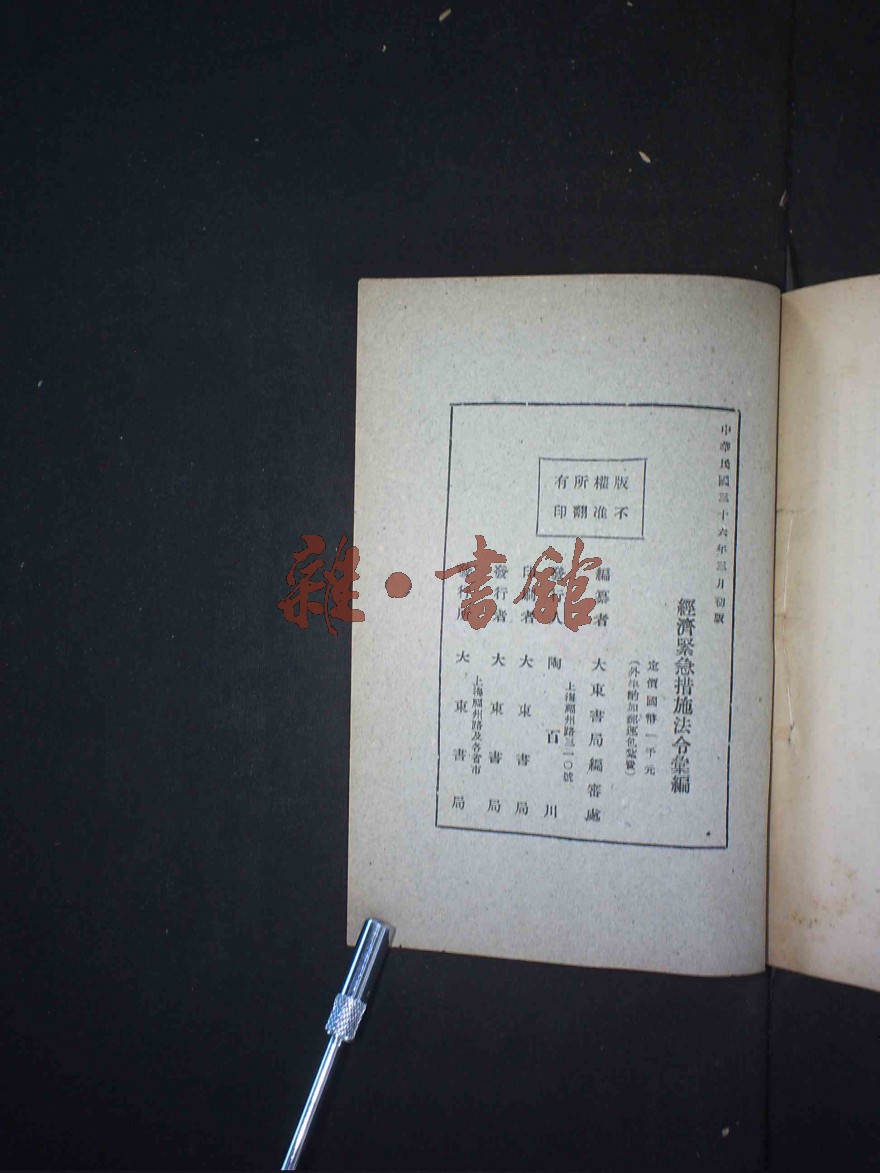 中華民國三十六年三月初版
經濟緊急措施法令彙編
定價國幣一千元
(外埠酌加郵運包裝費)
版權所有
不准翻印
編纂者 大東書局編審處
發行人 陶百川
上海福州路三一〇號
印刷者 大東書局
發行者 大東書局
上海福州路及各省市
發行所 大東書局
雜·書館